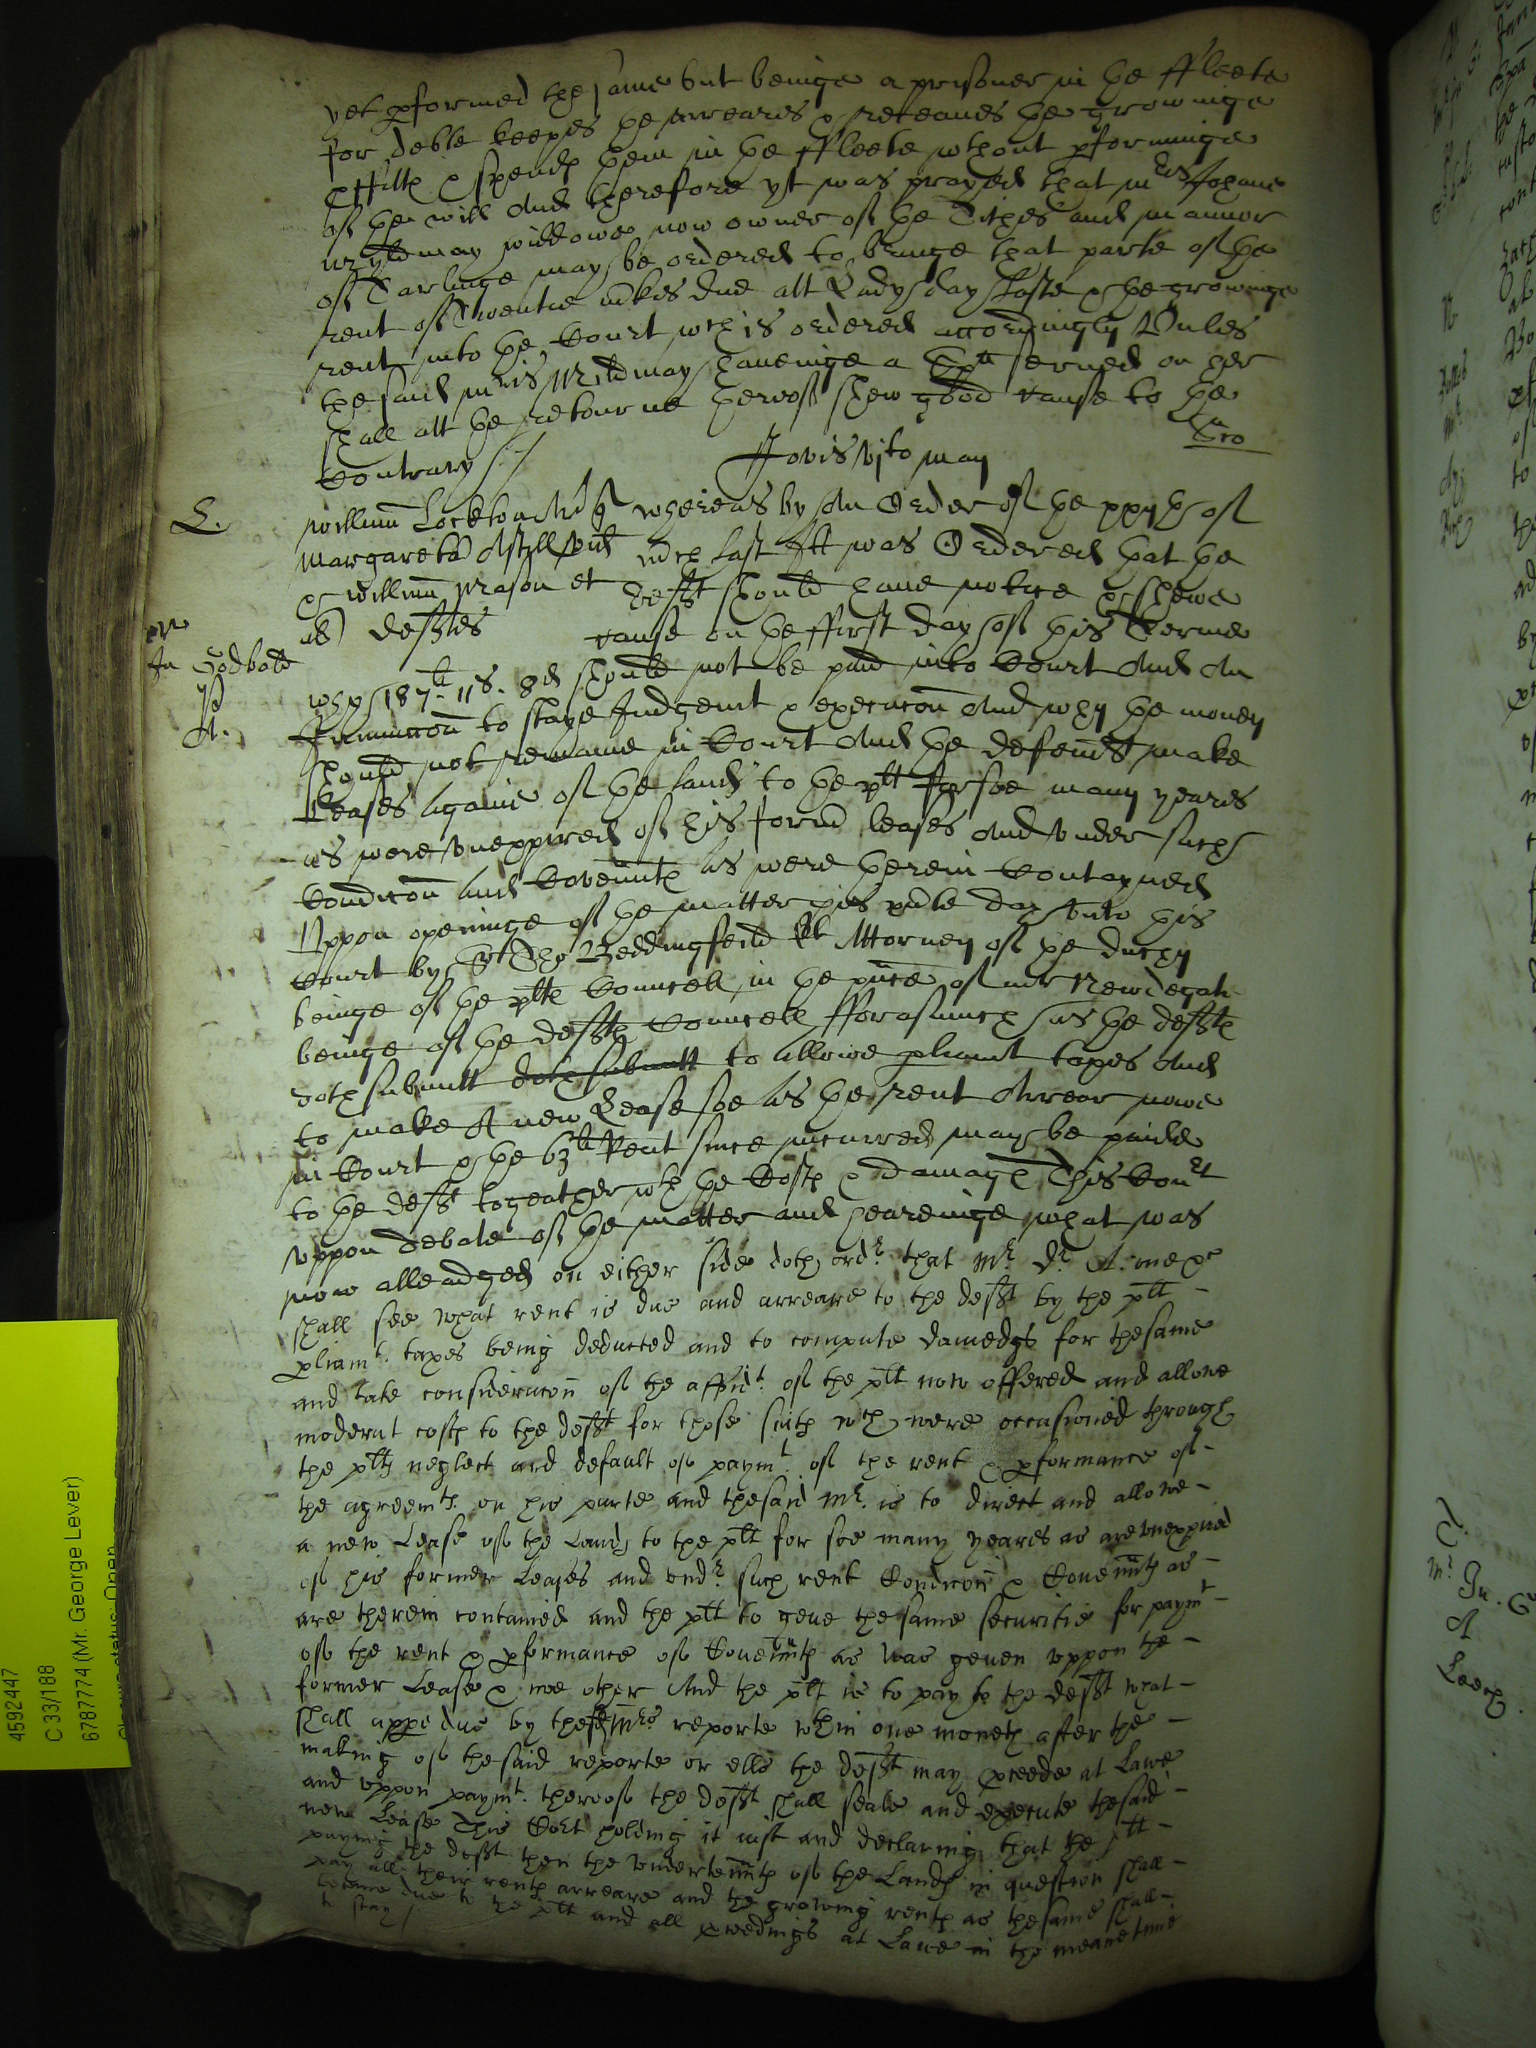 yet pformed the same but beinge a prisoner in the ffleete
for debte keepes the arreares & receaves the growinge
& spends them in the ffleete wthout pforminge
of the will And therefore yt was prayed that mris Johane
mildmay widdowe now owner of the Tithes and mannor
of Tarlinge may be ordered to bringe that parte of the
rent of Twentie mkes due att Ladyday laste & the growinge
rent into the Court wch is ordered accordingly Unles
the said mris Mildmay haveinge a Spa served on her
shall att the retourne thereof shew good cause to the
Contrary
Jovis vjto may
L.
Willim Lockton Ar q whereas by An Order of the xxvth of
Margareta Astell vid mch last It was Ordered that the
& Willim Mason et deft should have notice & shewe
al defftes cause on the ffirst day of this Terme
Jn Godbold
A.
why 187li. 11s. 8d should not be paid into Court And An
Jniuncon to staye Judgemt & execucon And why the money
should not remaine in Court And the defendt make
Leases Againe of the lands to the plt for soe many yeares
as were unexpired of his form leases And under such
Condicon And Covennts As were therein Contayned
Uppon openinge of the matter this pnte day unto this
Court by Sr Tho Beddingfeild kt Attorney of the duchy
beinge of the plts Councell in the pnce of mr Newdegate
beinge of the defts Councell fforasmuch as the defts
doth submitt doth submitt to allowe pliamt taxes And
to make A new Lease soe As the rent Arrear nowe
in Court & the 63li Rent since incurred may be paide
to the deft togeather wth the Costs & damages This Court
uppon debate of the matter and heareinge what was
now alleadged on either side doth ordr that Mr Dr A: me xr
shall see what rent is due and arreare to the deft by the plt
pliamt. taxes being deducted and to compute damedgs for the same
and take consideracon of the affidt. of the plt now offered and allowe
moderat costs to the deft for those suits wch were occasioned through
the plts neglect and default of paymt. of the rent & pformance of
the agreemts. on his parte and the said Mr. is to direct and allowe
a new Lease of the Lands to the plt for soe many yeares as are unexpired
of his former Leases and undr such rent Condicon & Covennts as
are therein contained and the plt to geve the same securitie for paymt
of the rent & pformance of Covennts as was geven uppon the
former Lease & noe other And the plt is to pay to the deft what
shall appe due by the sd Mrs reporte wthin one moneth after the
making of the said reporte or ells the deft may pceede at Lawe
and uppon paymt. thereof the deft shall seale and execute the said
new Lease This Cort holding it iust and declaring that the plt
paying the deft then the undertennts of the Lands in question shall
pay all their rents arreare and the growing rents as the same shall
become due to the plt and all pceedings at Lawe in the meane time
to stay
4592447
C 33/188
6787774 (Mr. George Lever)